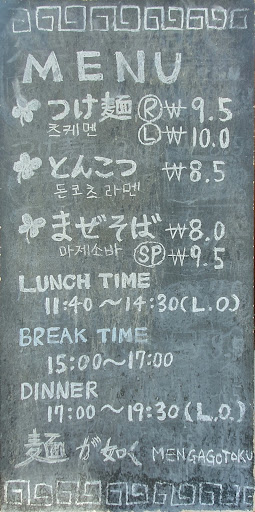 MENU
つけ麺 Ⓡ ₩ 9.5
츠케멘 Ⓛ ₩ 10.0
とんこつ ₩ 8.5
돈코츠 라멘
まぜそば ₩ 8.0
마제소바 SP ₩ 9.5
LUNCH TIME
11:40 ～ 14:30 (L.O.)
BREAK TIME
15:00～17:00
DINNER
17:00 ～ 19:30 (L.O.)
麺 が 如く MENGAGOTOKU